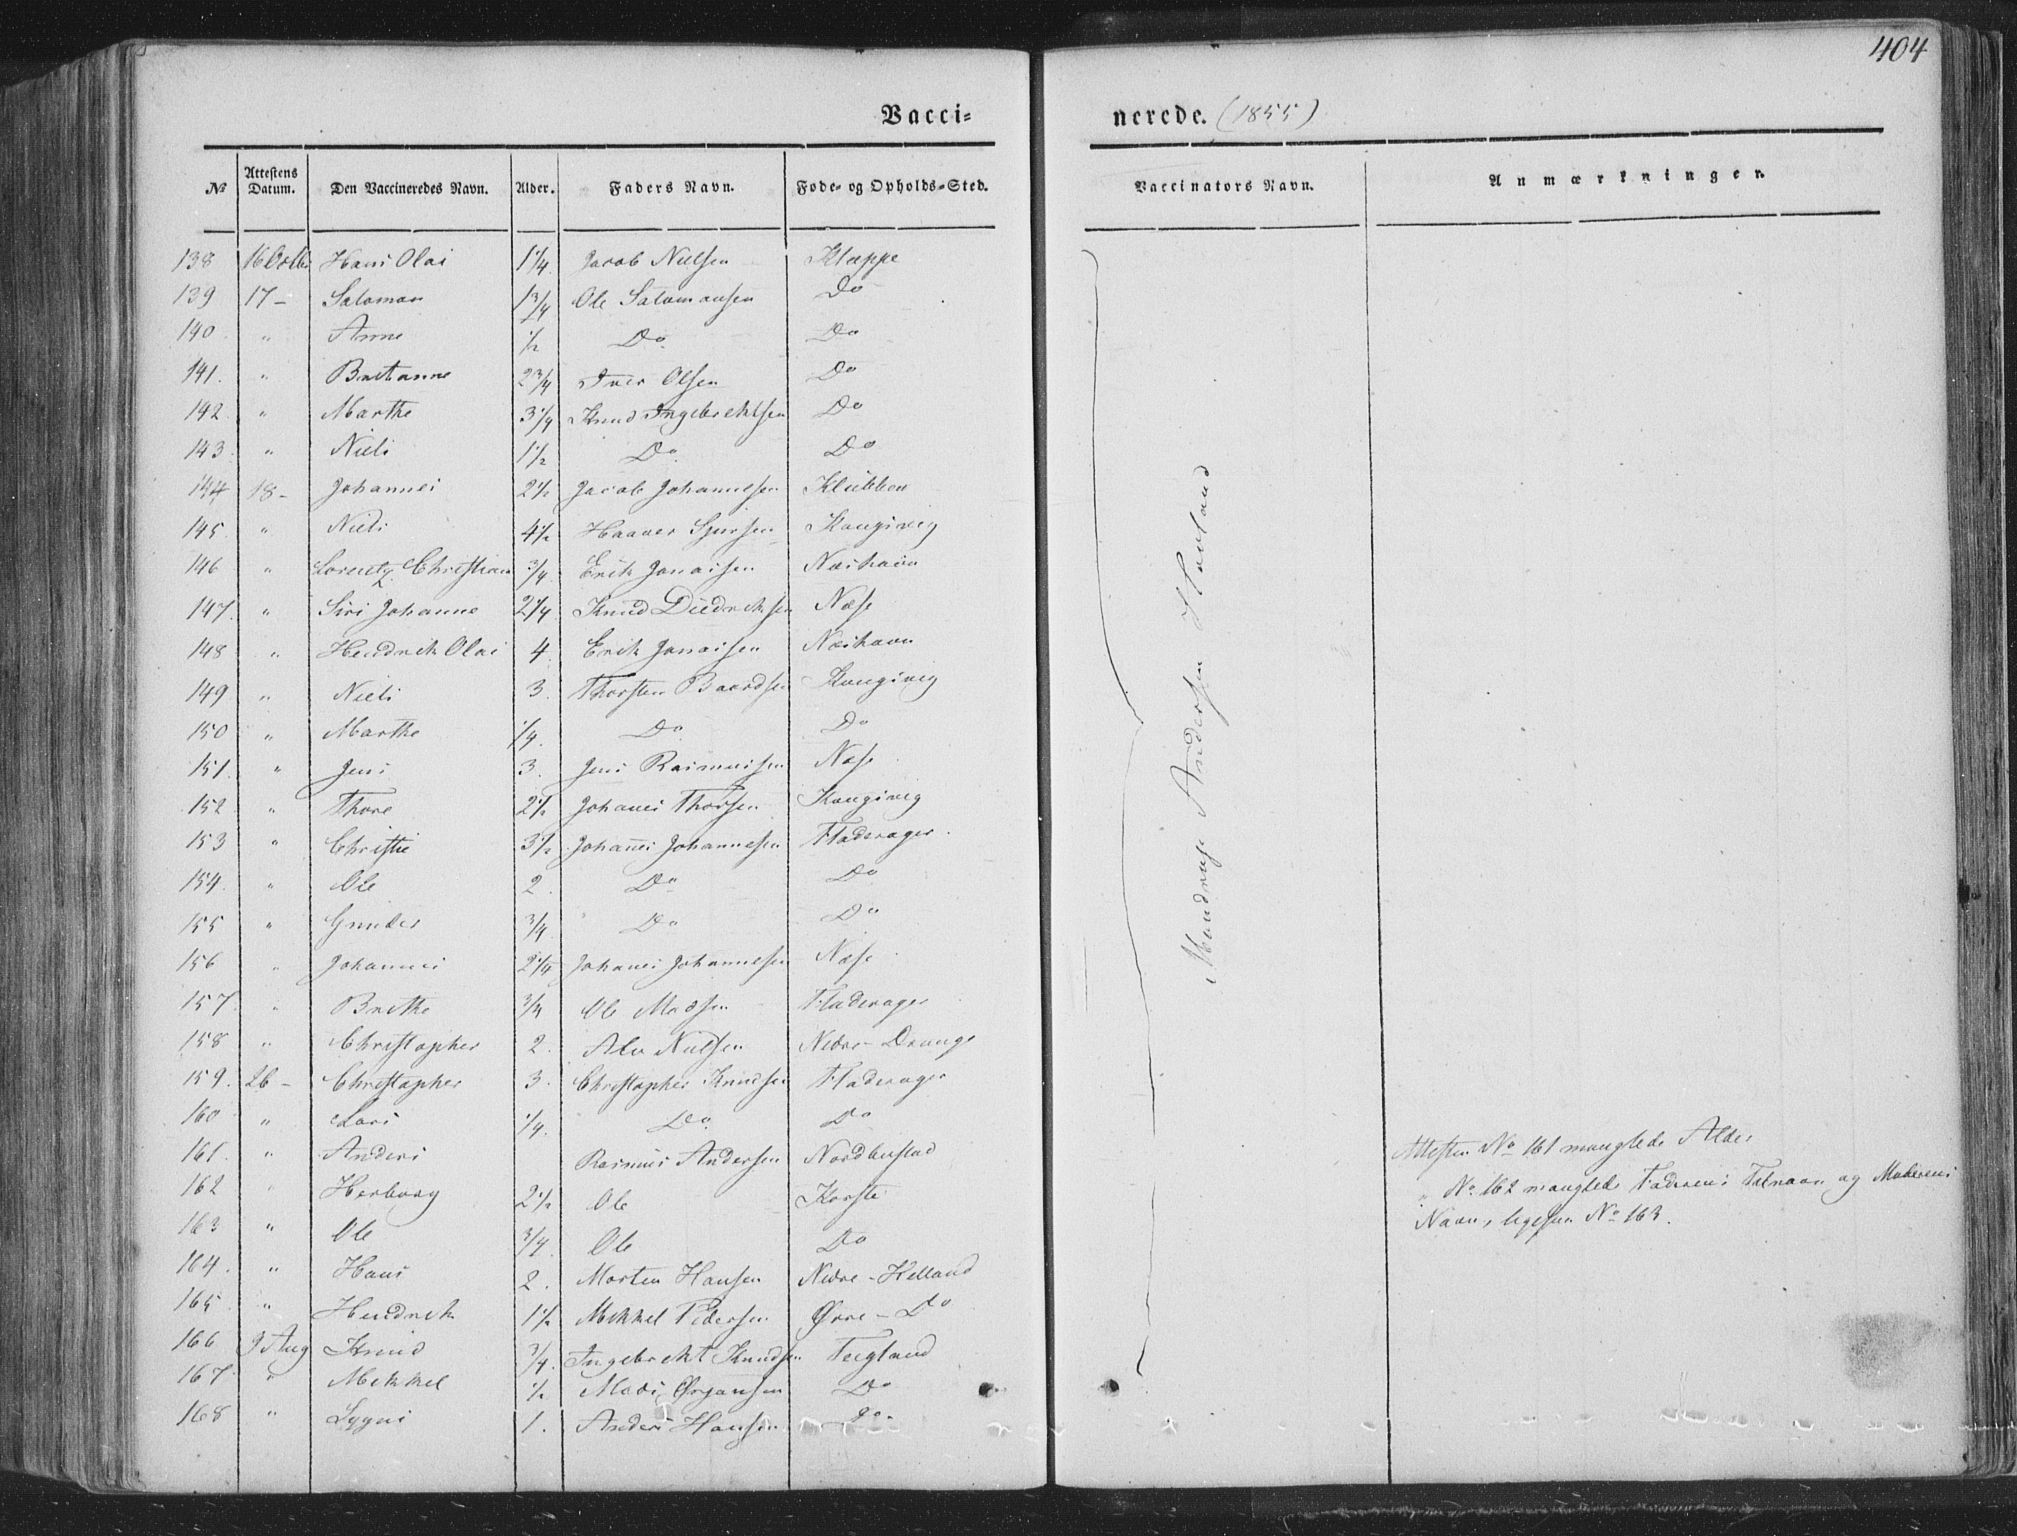 404
Vaccinerede. (1855)
№ Attestens Datum. Den Vaccineredes Navn. Alder. Faders Navn. Føde- og Opholds-Sted. Vaccinators Navn. Anmærkninger.
138 16 Octbr Hans Olai 1 1/4 Jacob Nielsen Kleppe
139 17 - Salomon 1 3/4 Ole Salomonsen Do
140 " Anne 1/2 Do Do
141. " Britanne 2 3/4 Iver Olsen Do
142. " Marthe 3 1/4 Knud Ingebrektsen Do
143. " Niels 1 1/2 Do Do
144 18 - Johannes 2 1/2 Jacob Johannesen Klubben
145. " Niels 4 1/2 Haaver Sjursen
146 " Lorentz Christian 3/4 Erik Jonassen Næshavn
147. " Siri Johanne 2 1/4 Knud Diedriksen Næse
148 " Hendrik Olai 4 Erik Jonassen Næshavn
149 " Niels 3. Thorsten Baardsen
150 " Marthe 1/4. Do Do
151. " Jens 3. Jens Rasmussen Næse
152 " Thore 2 1/2 Johanes Thorsen
153 " Christie 3 1/2 Johanes Johannesen Fladerager
154. " Ole 2. Do Do
155 " Gunder 3/4 Do Do
156 " Johannes 2 1/4 Johanes Johannesen Næse
157. " Brithe 3/4 Ole Madsen Fladerager
158 " Christopher 2. Ale Nielsen Nedre-Drange
159. 26 - Christopher 3. Christopher Knudsen Fladerager
160 " Lars 1/4. Do Do
161. " Anders Rasmus Andersen Nordbustad
162 " Herborg 2 1/2 Ole Korste
163 " Ole 3/4. Ole Do
164. " Hans 2. Morten Hansen Nedre-Helland
165. " Hendrik 1 1/2 Mikkel Pedersen Øvre-Do
166 9 Aug Knud 3/4. Ingebrekt Knudsen Teigland
167. " Mikkel 1/2 Mads Ørjansen Do
168 " 1. Anders Hansen Do
Andersen Hovland
Attesten No 161 manglede Alder
" No 162 manglede Faderens Tilnavn og Moderens
Navn, ligesom No 163.